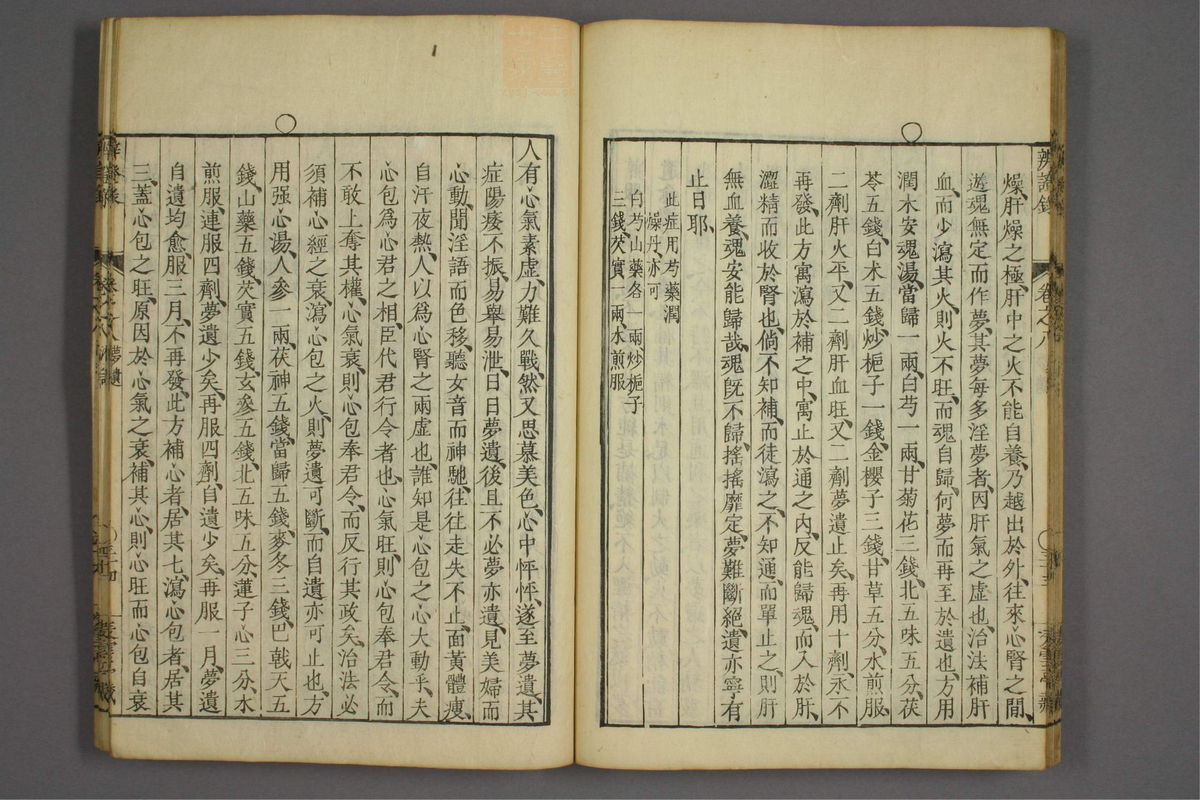 辨證錄 卷之八
燥、肝燥之極、肝中之火不能自養、乃越出於外、往來心腎之間、
遊魂無定而作夢、其夢每多淫夢者、因肝氣之虛也、治法補肝
血、而少瀉其火、則火不旺、而魂自歸、何夢而再至於遺也、方用
潤木安魂湯、當歸一兩、白芍一兩、甘菊花三錢、北五味五分、茯
苓五錢、白朮五錢、炒梔子一錢、金櫻子三錢、甘草五分、水煎服、
二劑肝火平、又二劑肝血旺、又二劑夢遺止矣、再用十劑、永不
再發、此方寓瀉於補之中、寓止於通之內、反能歸魂、而入於肝、
澀精而收於腎也、倘不知補、而徒瀉之、不知通、而單止之、則肝
無血養、魂安能歸哉、魂旣不歸、搖搖靡定、夢難斷絕、遺亦寧有
止日耶、
此症用芍藥潤
燥丹、亦可
白芍山藥各一兩炒梔子
三錢、芡實一兩、水煎服
人有心氣素虛、力難久戰、然又思慕美色、心中怦怦、遂至夢遺、其
症陽痿不振、易舉易泄、日日夢遺、後且不必夢亦遺、見美婦而
心動、聞淫語而色移、聽女音而神馳、往往走失不止、面黃體瘦、
自汗夜熱、人以爲心腎之兩虛也、誰知是心包之心大動乎、夫
心包爲心君之相、臣代君行令者也、心氣旺、則心包奉君令、而
不敢上奪其權、心氣衰、則心包奉君令、而反行其政矣、治法必
須補心經之衰、瀉心包之火、則夢遺可斷、而自遺亦可止也、方
用强心湯、人參一兩、茯神五錢、當歸五錢、麥冬三錢、巴戟天五
錢、山藥五錢、芡實五錢、玄參五錢、北五味五分、蓮子心三分、水
煎服、連服四劑、夢遺少矣、再服四劑、自遺少矣、再服一月、夢遺
自遺均愈、服三月、不再發、此方補心者、居其七、瀉心包者、居其
三、蓋心包之旺、原因於心氣之衰、補其心、則心旺而心包自衰
夢遺